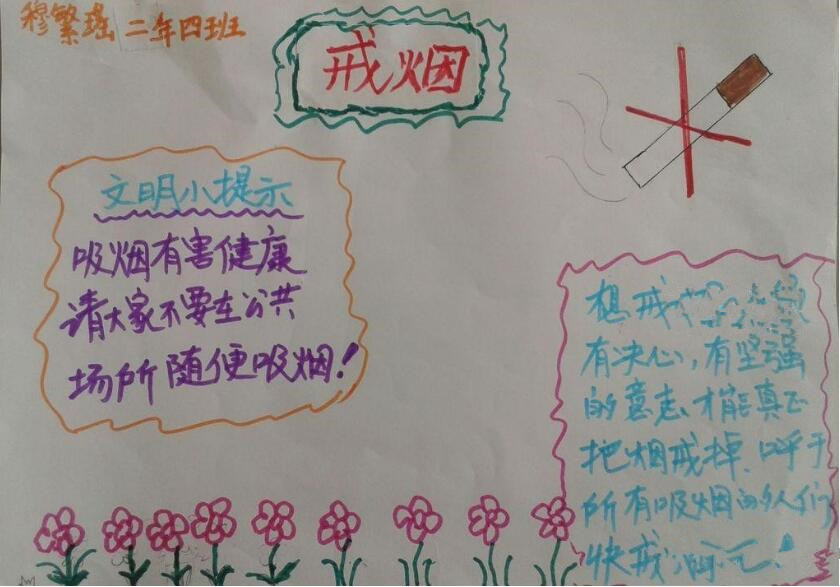 穆繁瑶 二年四班
戒烟
文明小提示
吸烟有害健康
请大家不要在公共
场所随便吸烟!
想戒
有决心,有坚强
的意志才能真正
把烟戒掉.呼于
所有吸烟的人们
快戒